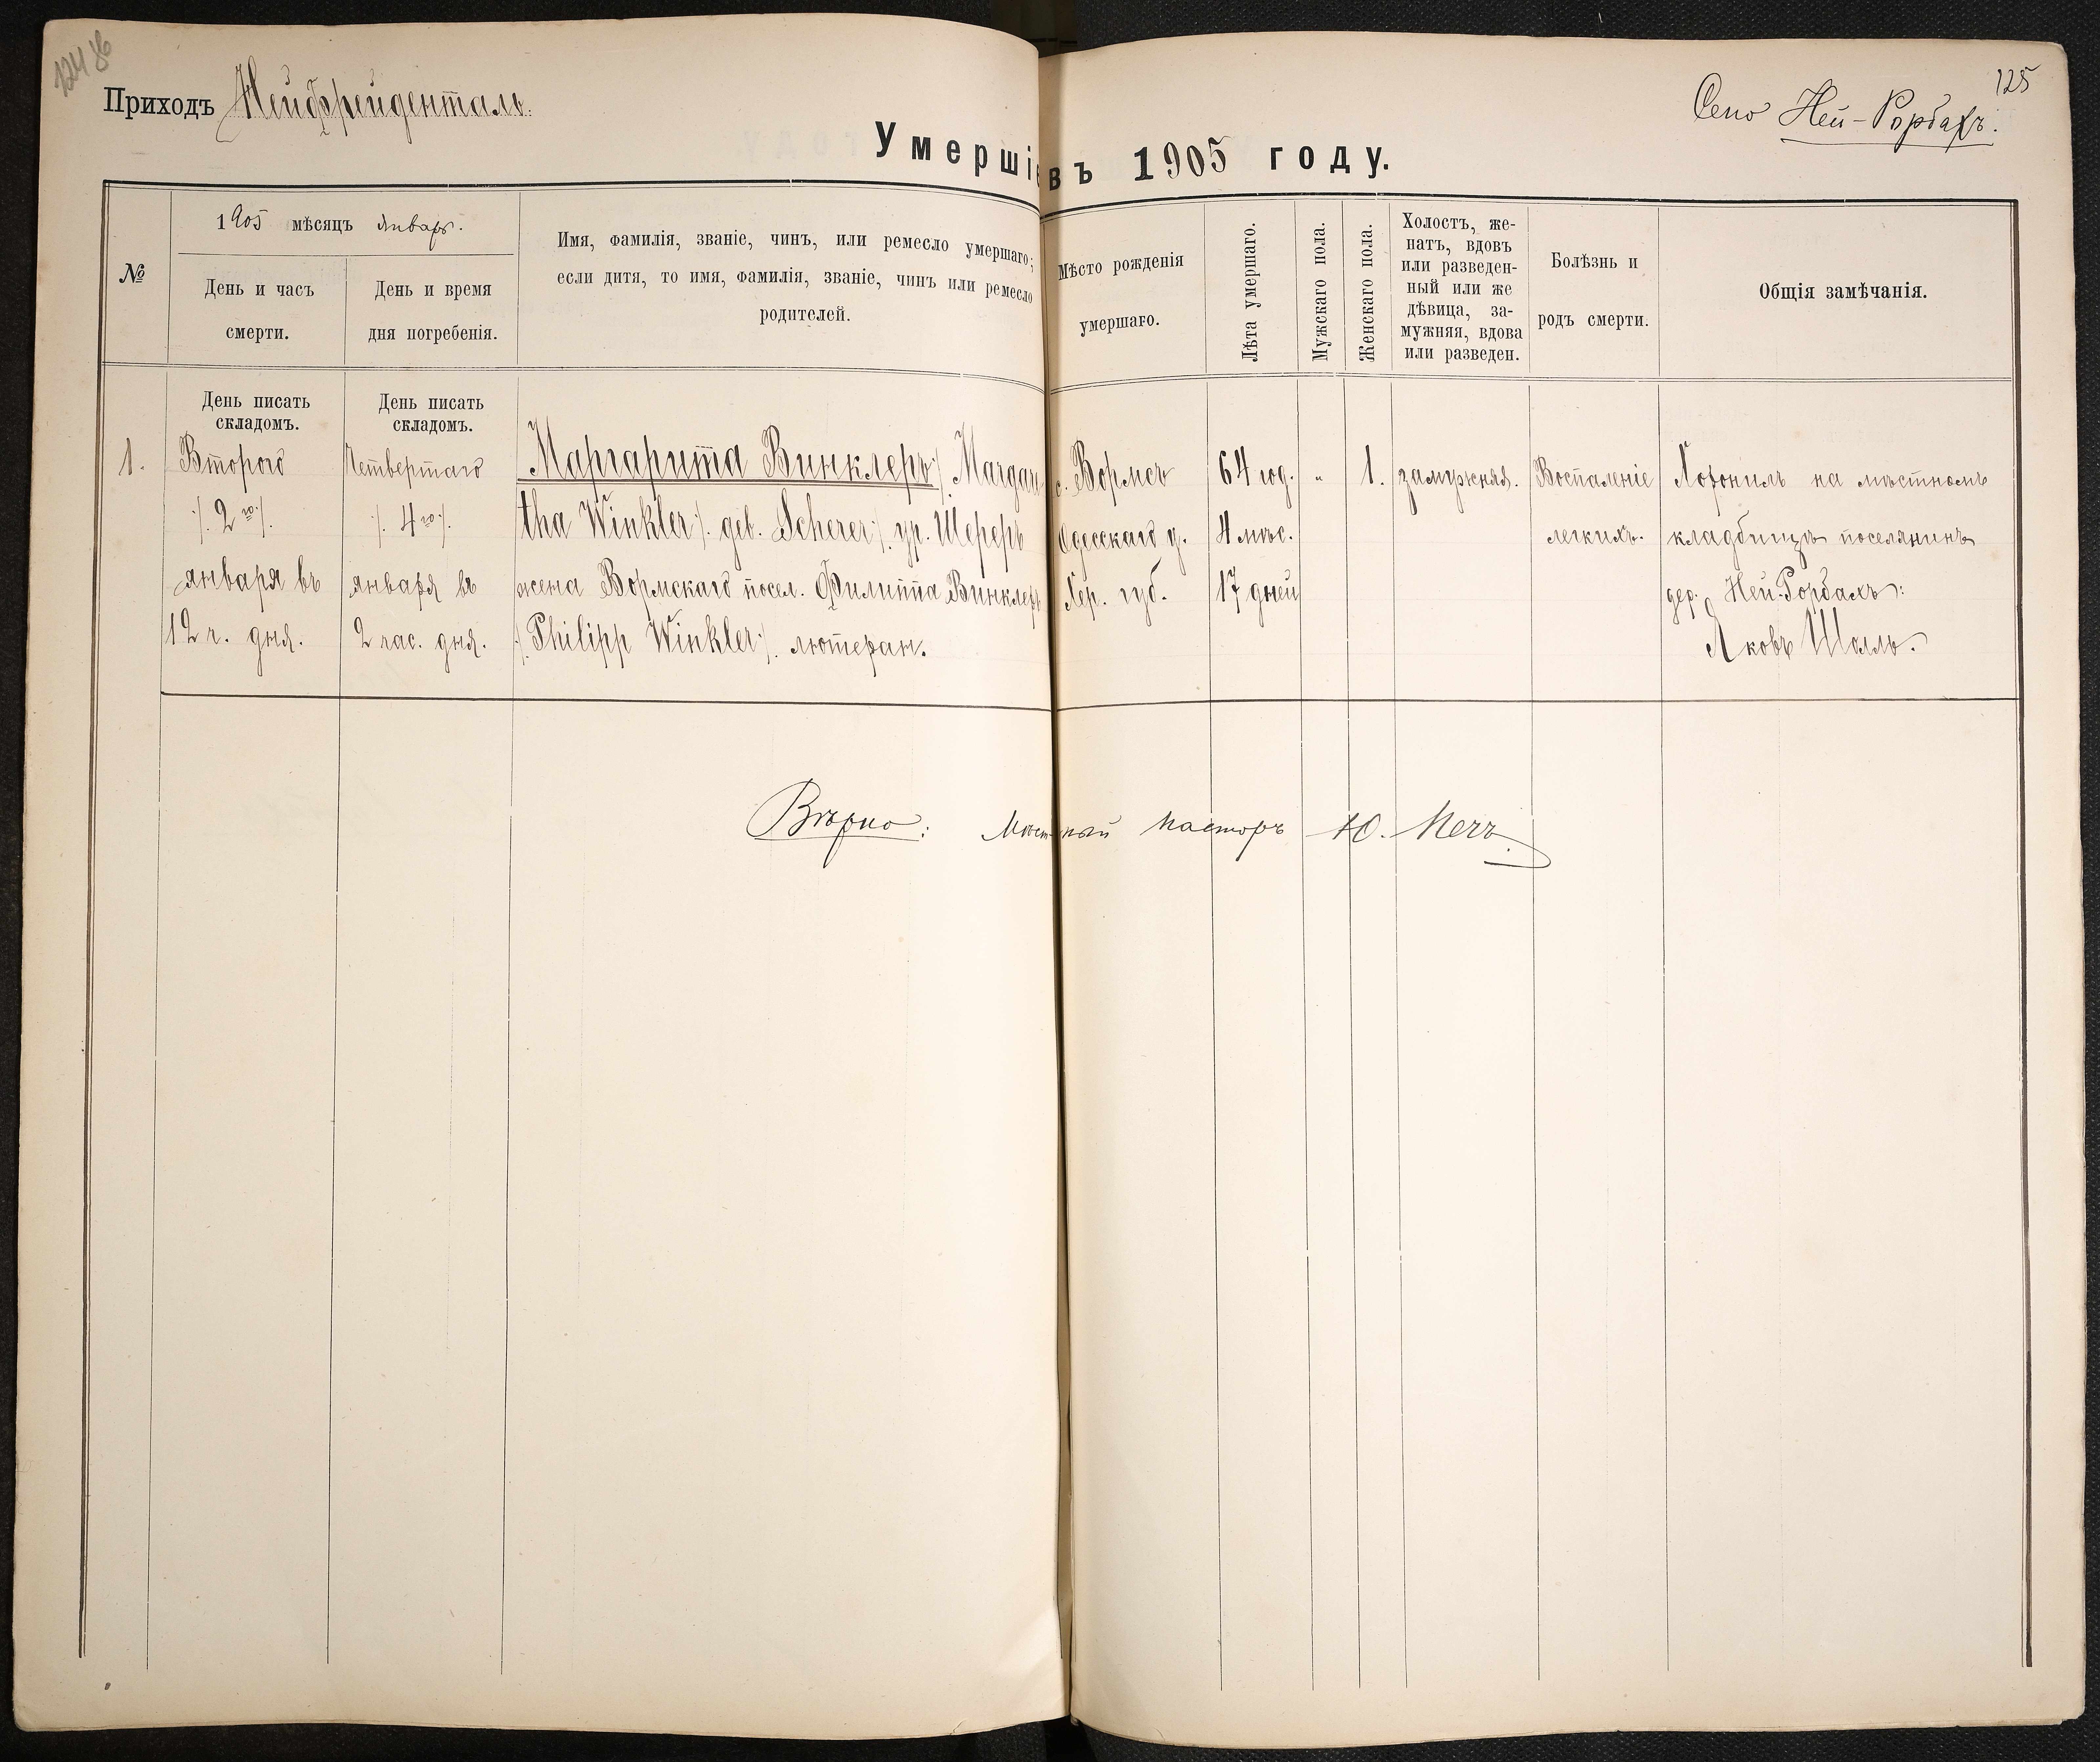 Приходъ Нейфрейденталь.
Село Ней-Рорбахъ.
125
Умершіе въ 1905 году.
№
1905 мѣсяцъ январь.
День и часъ
смерти.
День и время
дня погребенія.
Имя, фамилія, званіе, чинъ, или ремесло умершаго;
если дитя, то имя, фамилія, званіе, чинъ или ремесло
родителей.
Мѣсто рожденія
умершаго.
Лѣта умершаго.
Мужскаго пола.
Женскаго пола.
Холостъ, же-
натъ, вдовъ
или разведен-
ный или же
дѣвица, за-
мужняя, вдова
или разведен.
Болѣзнь и
родъ смерти.
Общія замѣчанія.
День писать
складомъ.
День писать
складомъ.
1.
Второго
/. 2го ./.
января въ
12 ч. дня.
Четвертаго
/. 4го ./.
января въ
2 час. дня.
Маргарита Винклеръ /. Margare
tha Winkler ./. geb. Scherer ./. ур. Шереръ
жена Вормскаго посел. Филиппа Винклеръ
/. Philipp Winkler ./. лютеран.
с. Вормсъ
Одесскаго у.
Хер. губ.
64 год.
4 мѣс.
17 дней
"
1.
замужняя.
Воспаленіе
легкихъ.
Хоронилъ на мѣстномъ
кладбищѣ поселянинъ
дер. Ней-Рорбахъ:
Яковъ Шолль.
Вѣрно: Мѣстный пасторъ Ю.